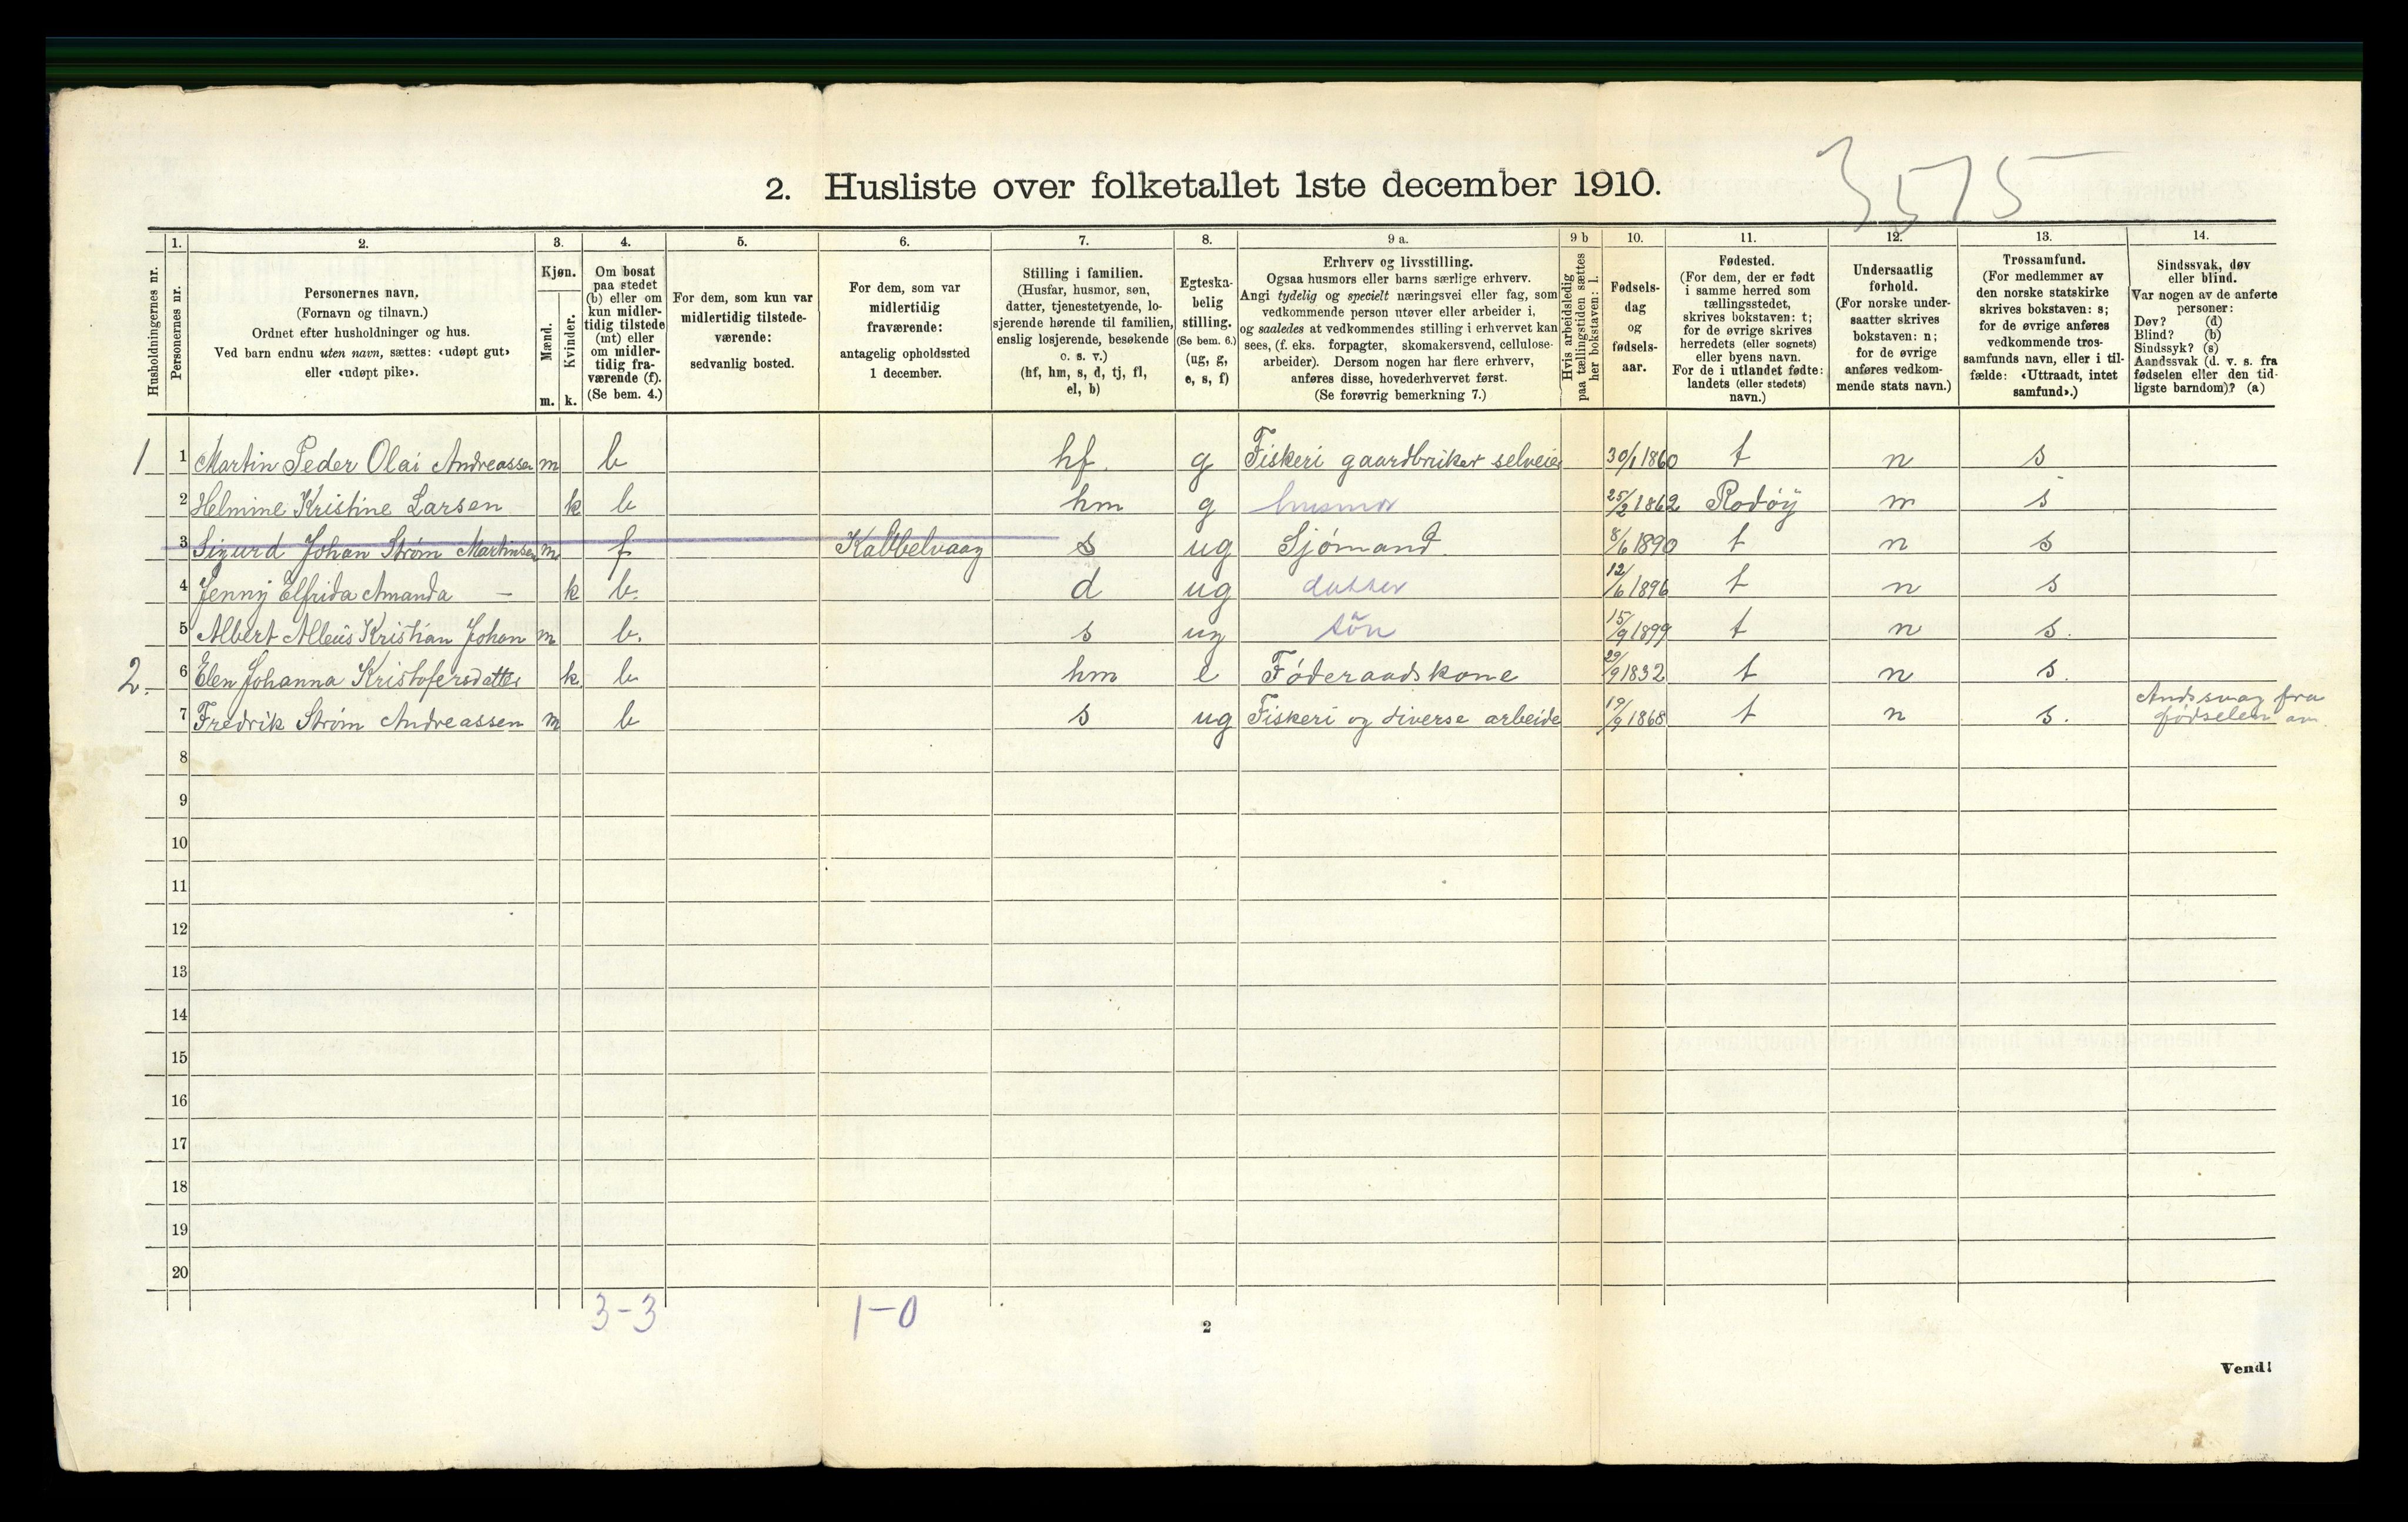 3575
2. Husliste over folketallet 1ste december 1910.
Husholdningernes nr.
1.
Personernes nr.
2.
Personernes navn.
(Fornavn og tilnavn.)
Ordnet efter husholdninger og hus.
Ved barn endnu uten navn, sættes: «udøpt gut»
eller «udøpt pike».
3.
Kjøn.
Mænd.
Kvinder.
m. k.
4.
Om bosat
paa stedet
(b) eller om
kun midler-
tidig tilstede
(mt) eller
om midler-
tidig fra-
værende (f).
(Se bem. 4.)
5.
For dem, som kun var
midlertidig tilstede-
værende:
sedvanlig bosted.
6.
For dem, som var
midlertidig
fraværende:
antagelig opholdssted
1 december.
7.
Stilling i familien.
(Husfar, husmor, søn,
datter, tjenestetyende, lo-
sjerende hørende til familien,
enslig losjerende, besøkende
o. s. v.)
(hf, hm, s, d, tj, fl,
el, b)
8.
Egteska-
belig
stilling.
(Se bem. 6.)
(ug, g,
e, s, f)
9 a.
Erhverv og livsstilling.
Ogsaa husmors eller barns særlige erhverv.
Angi tydelig og specielt næringsvei eller fag, som
vedkommende person utøver eller arbeider i,
og saaledes at vedkommendes stilling i erhvervet kan
sees, (f. eks. forpagter, skomakersvend, cellulose-
arbeider). Dersom nogen har flere erhverv,
anføres disse, hovederhvervet først.
(Se forøvrig bemerkning 7.)
9 b
Hvis arbeidsledig
paa tællingstiden sættes
her bokstaven: l.
10.
Fødsels-
dag
og
fødsels-
aar.
11.
Fødested.
(For dem, der er født
i samme herred som
tællingsstedet,
skrives bokstaven: t;
for de øvrige skrives
herredets (eller sognets)
eller byens navn.
For de i utlandet fødte:
landets (eller stedets)
navn.)
12.
Undersaatlig
forhold.
(For norske under-
saatter skrives
bokstaven: n;
for de øvrige
anføres vedkom-
mende stats navn.)
13.
Trossamfund.
(For medlemmer av
den norske statskirke
skrives bokstaven: s;
for de øvrige anføres
vedkommende tros-
samfunds navn, eller i til-
fælde: «Uttraadt, intet
samfund».)
14.
Sindssvak, døv
eller blind.
Var nogen av de anførte
personer:
Døv? (d)
Blind? (b)
Sindssyk? (s)
Aandssvak (d. v. s. fra
fødselen eller den tid-
ligste barndom)? (a)
1 1 Martin Peder Olai Andreassen m b hf. g Fiskeri gaardbruker selveier 30/1 1860 t n s
2 Helmine Kristine Larsen k b hm g husmor 25/2 1862 Rødøy n s
3 Sigurd Johan Strøm Martinsen m f Kaltbelvaag s ug Sjømand 8/6 1890 t n s
4 Jenny Elfrida Amanda — k b. d ug datter 12/6 1896 t n s
5 Albert Alleus Kristian Johan m b. s ug søn 15/9 1899 t n s.
2. 6 Elen Johanna Kristofersdatter k b hm e Føderaadskone 29/9 1832 t n s.
7 Fredrik Strøm Andreassen m b s ug Fiskeri og diverse arbeide 19/9 1868 t n s. Andssvag fra
fødselen av.
8
9
10
11
12
13
14
15
16
17
18
19
20
3-3 1-0
2
Vend!